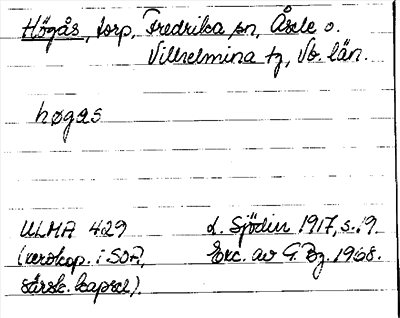 Högås, torp, Fredrika sn, Åsele o.
Vilhelmina tg, Vb. län.
høgas
ULMA 429
(xerokop. i SOA,
särsk. kapsel).
L. Sjödin 1917, s. 19.
Exc. av G. Bg. 1968.